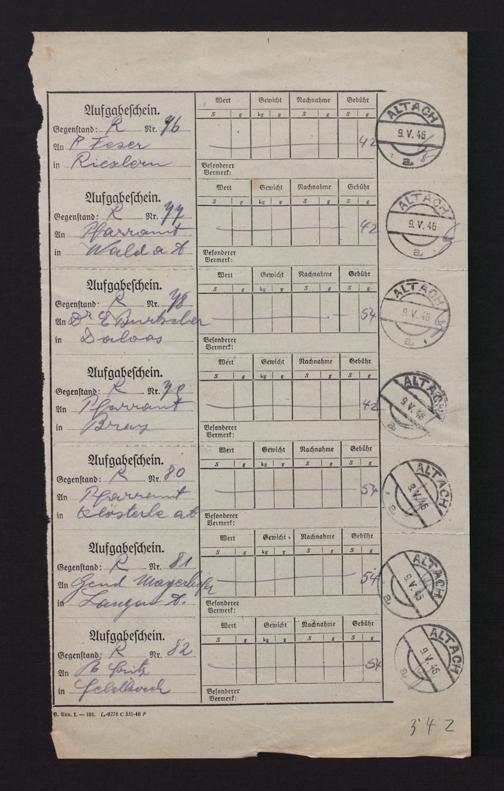 Aufgabeschein.
Gegenstand: R Nr. 76
An P. Feser
in
Wert Gewicht Nachnahme Gebühr
S g kg g S g S g
42
Besonderer
Vermerk:
ALTACH
9.V.46
a
Aufgabeschein.
Gegenstand: R Nr. 77
An Pfarramt
in Wald a A
Wert Gewicht Nachnahme Gebühr
S g kg g S g S g
42
Besonderer
Vermerk:
ALTACH
9.V.46
a
Aufgabeschein.
Gegenstand: R Nr. 78
An Dr E Burtscher
in Dalaas
Wert Gewicht Nachnahme Gebühr
S g kg g S g S g
54
Besonderer
Vermerk:
ALTACH
9.V.46
a
Aufgabeschein.
Gegenstand: R Nr. 79
An Pfarramt
in Braz
Wert Gewicht Nachnahme Gebühr
S g kg g S g S g
42
Besonderer
Vermerk:
ALTACH
9.V.46
a
Aufgabeschein.
Gegenstand: R Nr. 80
An Pfarramt
in Klösterle a A
Wert Gewicht Nachnahme Gebühr
S g kg g S g S g
54
Besonderer
Vermerk:
ALTACH
9.V.46
a
Aufgabeschein.
Gegenstand: R Nr. 81
An Gend
in Langen A.
Wert Gewicht Nachnahme Gebühr
S g kg g S g S g
54
Besonderer
Vermerk:
ALTACH
9.V.46
a
Aufgabeschein.
Gegenstand: R Nr. 82
An
in Feldkirch
Wert Gewicht Nachnahme Gebühr
S g kg g S g S g
54
Besonderer
Vermerk:
ALTACH
9.V.46
a
342